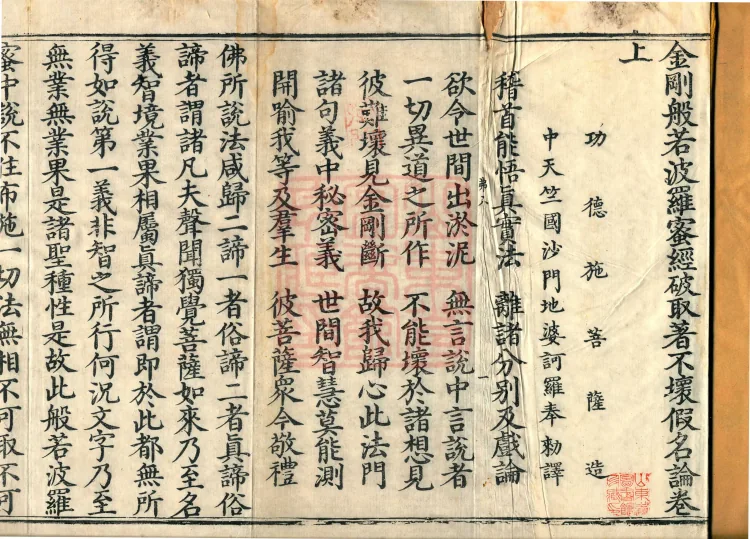 金剛般若波羅蜜經破取著不壞假名論卷
上
功德施菩薩造
中天竺國沙門地婆訶羅奉勅譯
稽首能悟眞實法 離諸分別及戲論
欲令世間出淤泥 無言說中言說者
一切異道之所作 不能壞於諸想見
彼難壞見金剛斷 故我歸心此法門
諸句義中秘密義 世間智慧莫能測
開喻我等及羣生 彼菩薩衆今敬禮
佛所說法咸歸二諦一者俗諦二者眞諦俗
諦者謂諸凡夫聲聞獨覺菩薩如來乃至名
義智境業果相屬眞諦者謂即於此都無所
得如說第一義非智之所行何況文字乃至
無業無業果是諸聖種性是故此般若波羅
蜜中說不住布施一切法無相不可取不可